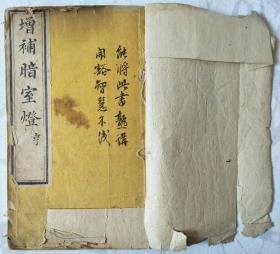 增補暗室燈
能將此書熟講
開豁智慧不淺